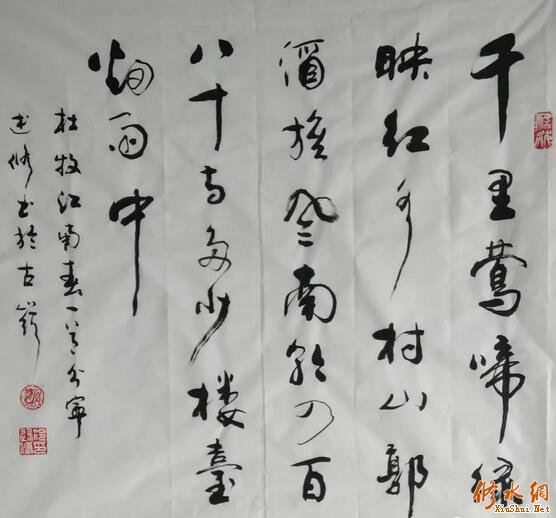 千里鶯啼绿
映红水村山郭
酒旗风南朝四百
八十寺多少楼臺
烟雨中
杜牧江南春一首分寧
述修书於古
修水網
XiuShui.Net